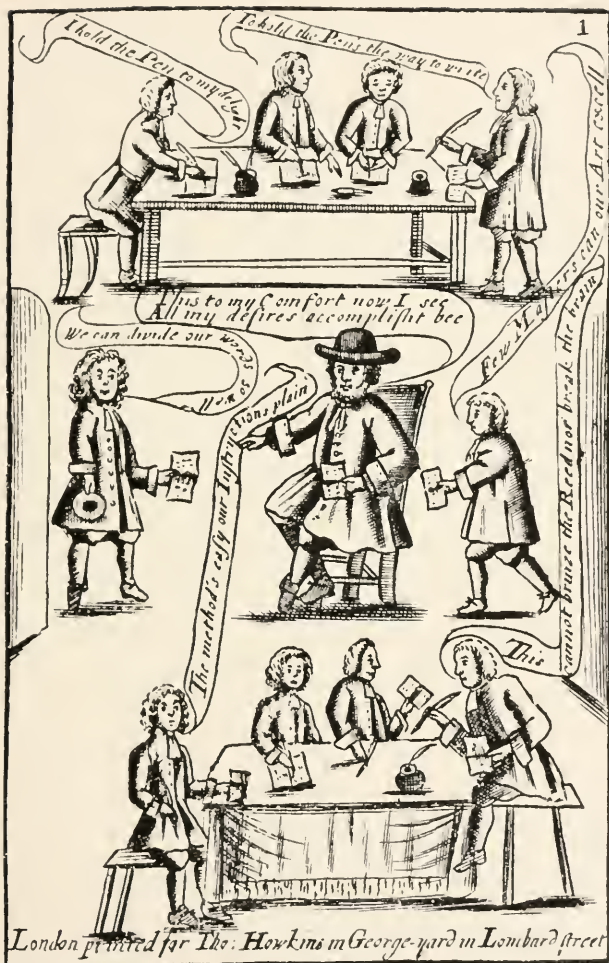 1
I hold the Pen to my delight
To hold the Pen's the way to write
This to my Comfort now I see
All my desires accomplisht bee
We can divide our words so well
Few Masters can our Art excell
The method's easy our Instructions plain
This cannot bruize the Reed nor break the brain
London printed for Tho: Howkins in George-yard in Lombard street